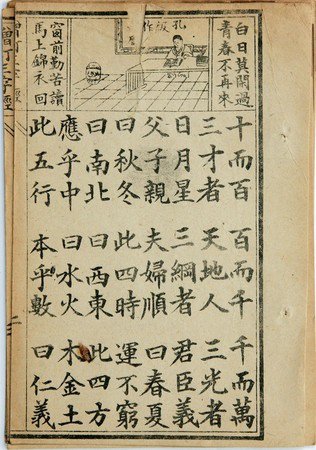 白日莫閒過
青春不再來
窗前勤苦讀
馬上錦衣回
十而百 百而千 千而萬
三才者 天地人 三光者
日月星 三綱者 君臣義
父子親 夫婦順 曰春夏
曰秋冬 此四時 運不窮
曰南北 曰西東 此四方
應乎中 曰水火 木金土
此五行 本乎數 曰仁義
增訂三字經
二